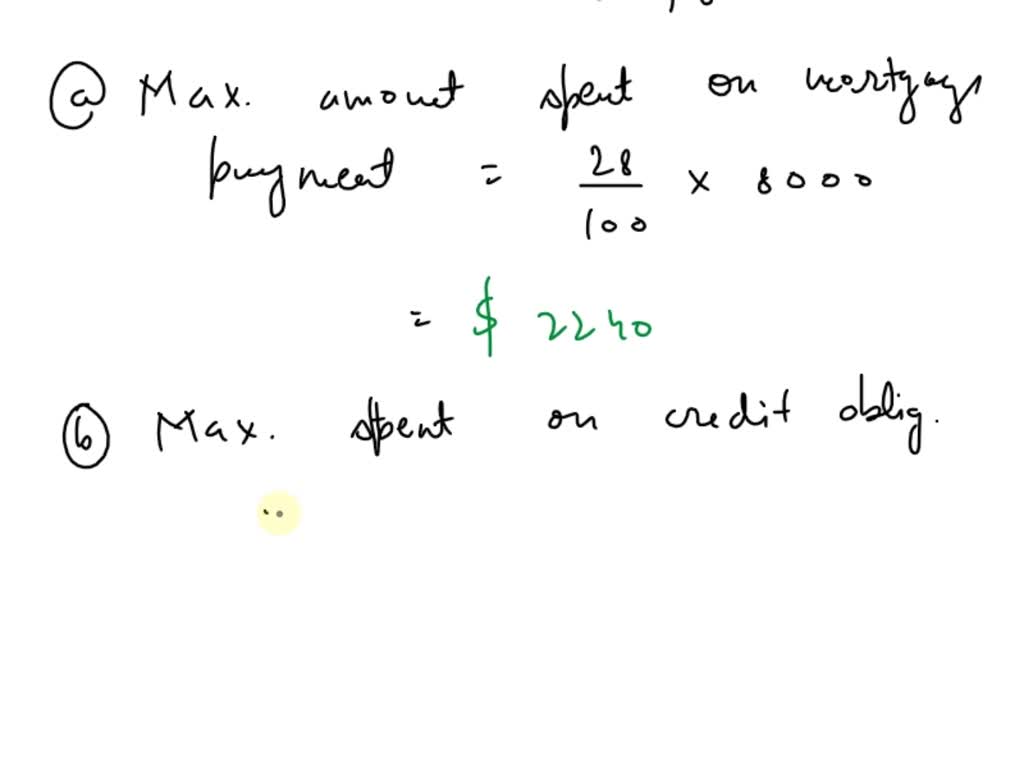 (a) Max. amount spent on mortgage
payment = 28/100 × 8000
= $ 2240
(b) Max. spent on credit oblig.